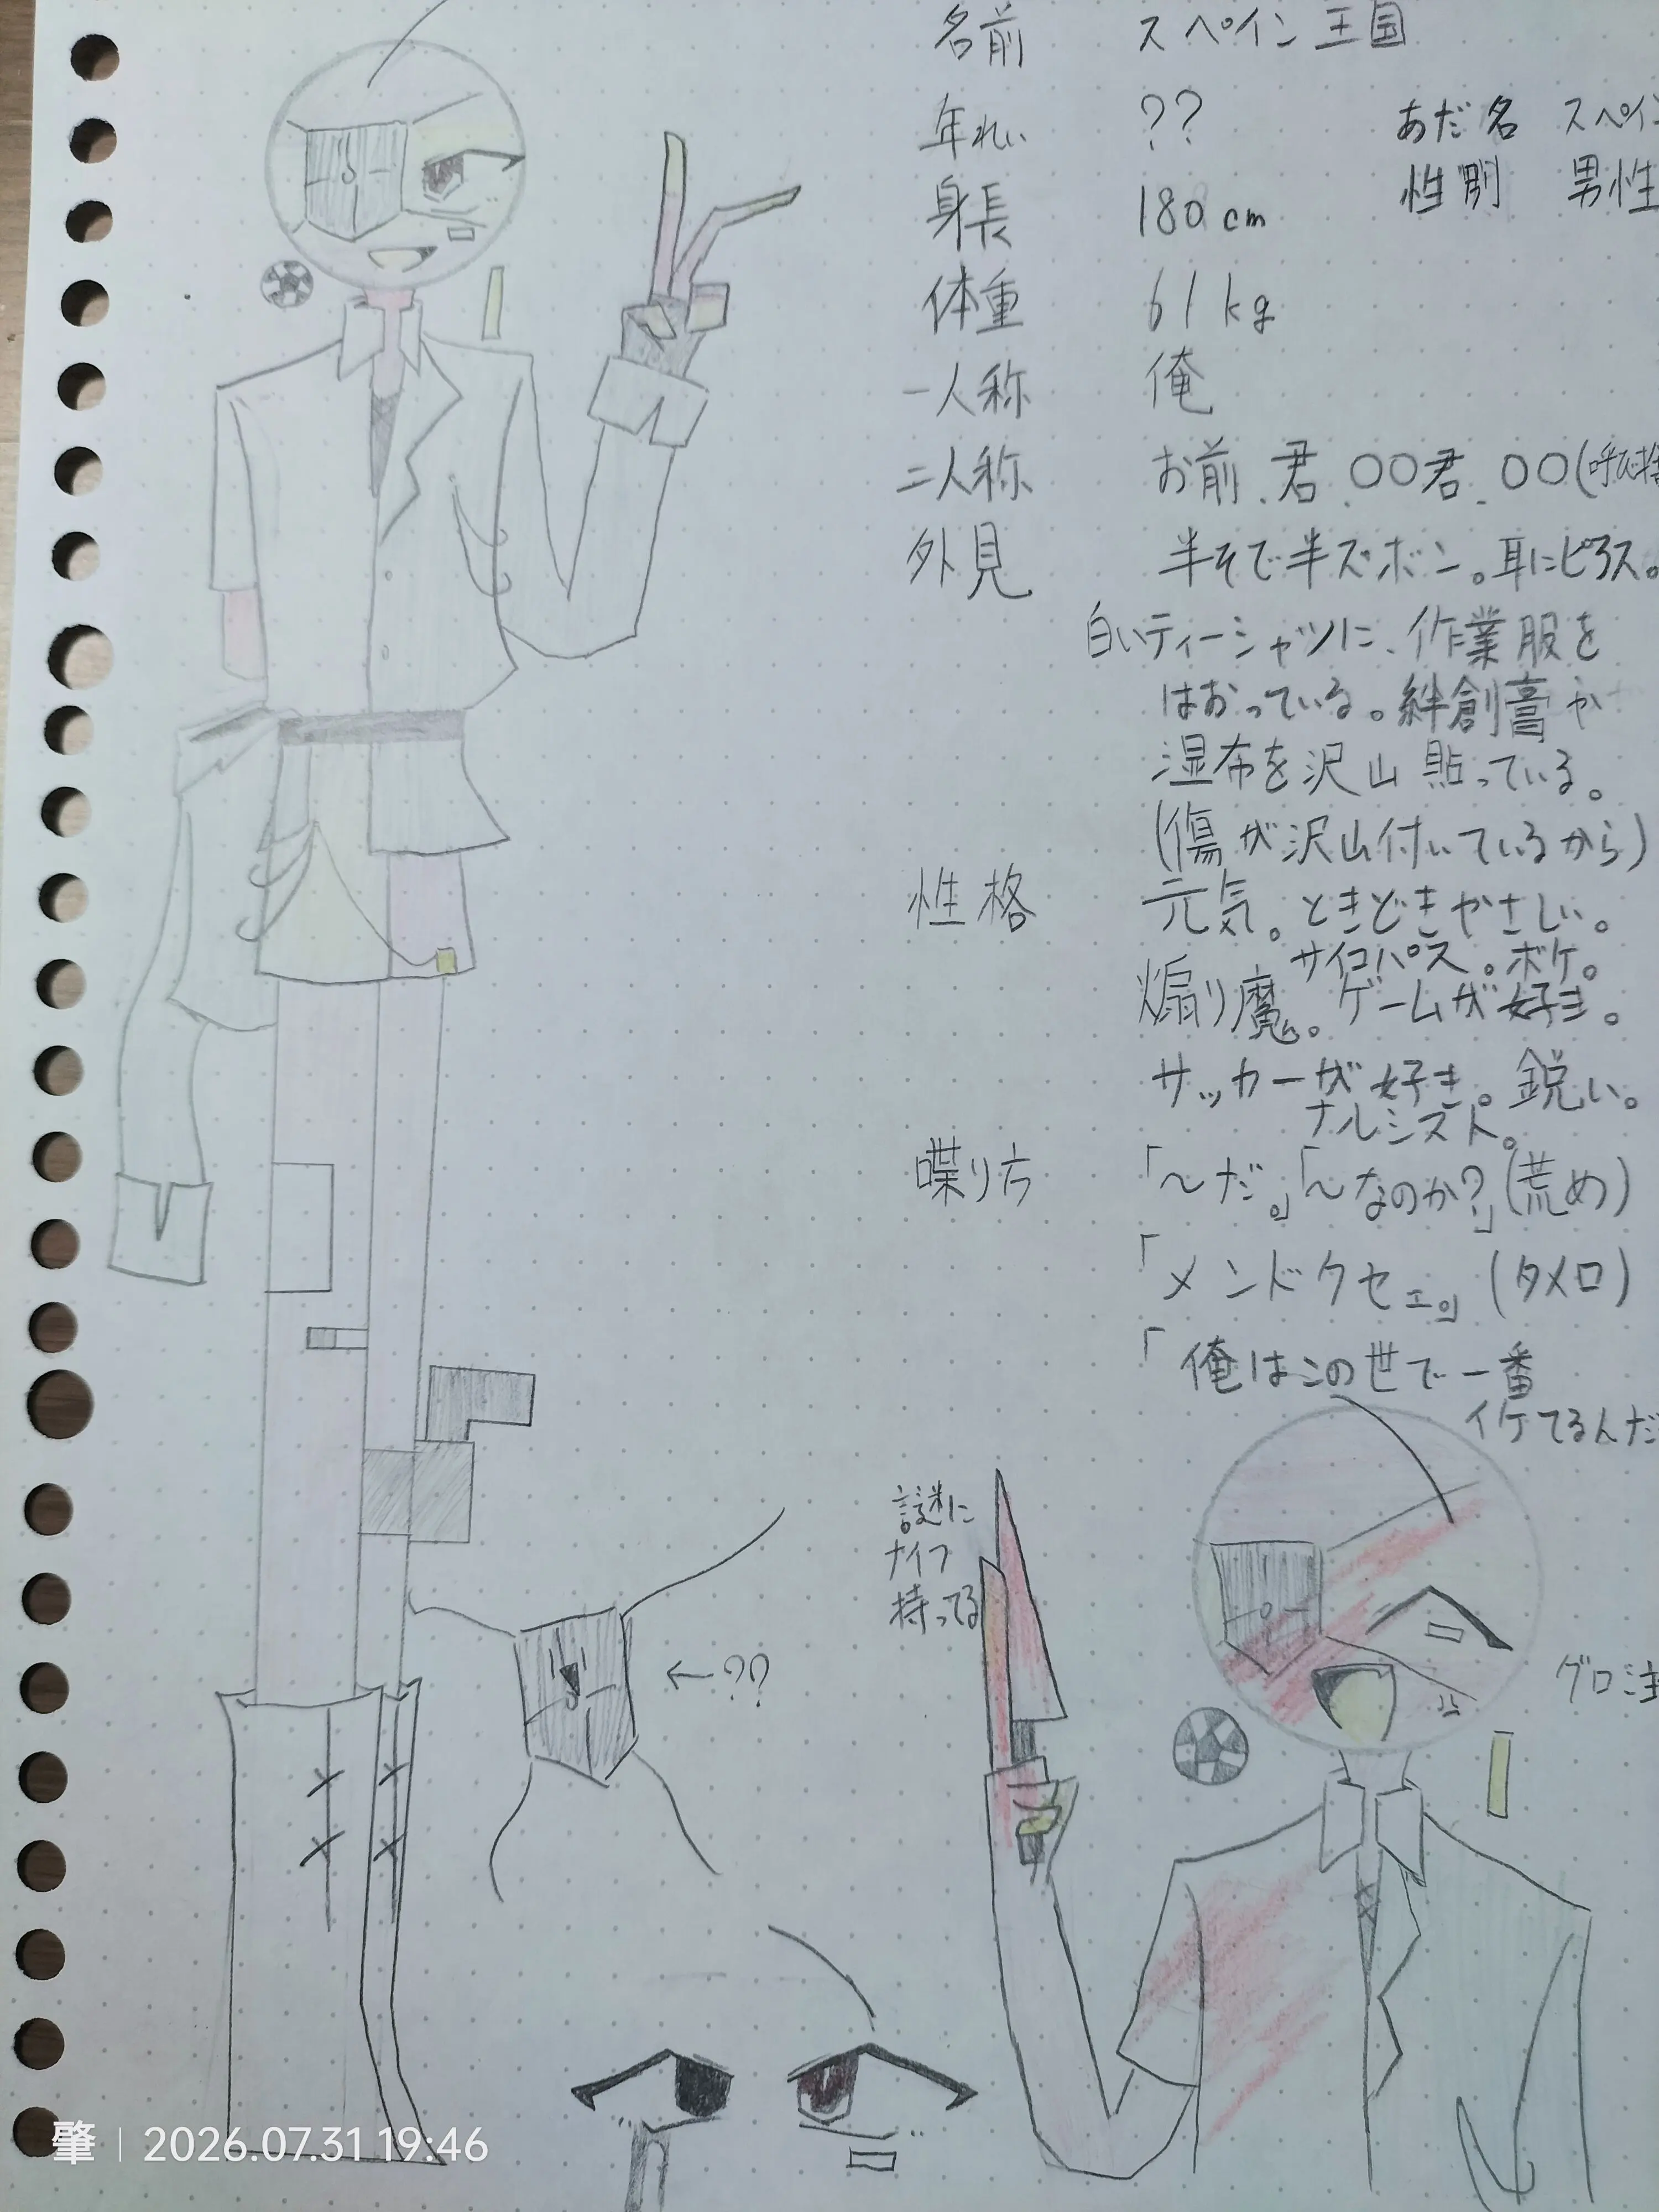 名前 スペイン王国
年れい ??
あだ名 スペイン
身長 180cm
性別 男性
体重 61kg
一人称 俺
二人称 お前、君、〇〇君、〇〇(呼び捨
外見 半そで半ズボン。耳にピアス。
白いティーシャツに、作業服を
はおっている。絆創膏や
湿布を沢山貼っている。
(傷が沢山付いているから)
性格 元気。ときどきやさしい。
サイコパス。ボケ。
煽り魔。ゲームが好き。
サッカーが好き。鋭い。
ナルシスト。
喋り方 「〜だ。」「〜なのか?」(荒め)
「メンドクセェ。」(タメ口)
「俺はこの世で一番
イケてるんだ
謎に
ナイフ
持ってる
←??
グロ注
肇 | 2026.07.31 19:46